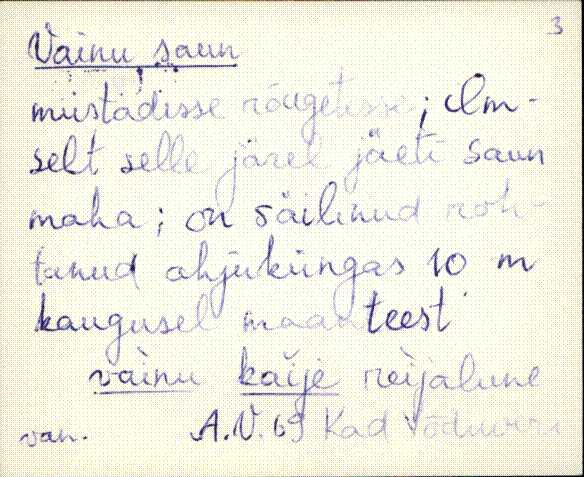 3
Vainu saun
mustadisse rõugetisse; ilm-
selt selle järel jäeti saun
maha; on säilinud roh-
tunud ahjuküngas 10 m
kaugusel maanteest
vainu kaije reijalune
van. A.V. 69 Kad Võduvere